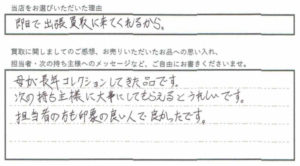 当店をお選びいただいた理由
即日で出張買取に来てくれるから。
買取に関しましてのご感想、お売りいただいたお品への思い入れ、
担当者・次の持ち主様へのメッセージなど、ご自由にお書きくださいませ。
母が長年コレクションしてきた品です。
次の持ち主様に大事にしてもらえるとうれしいです。
担当者の方も印象の良い人で良かったです。